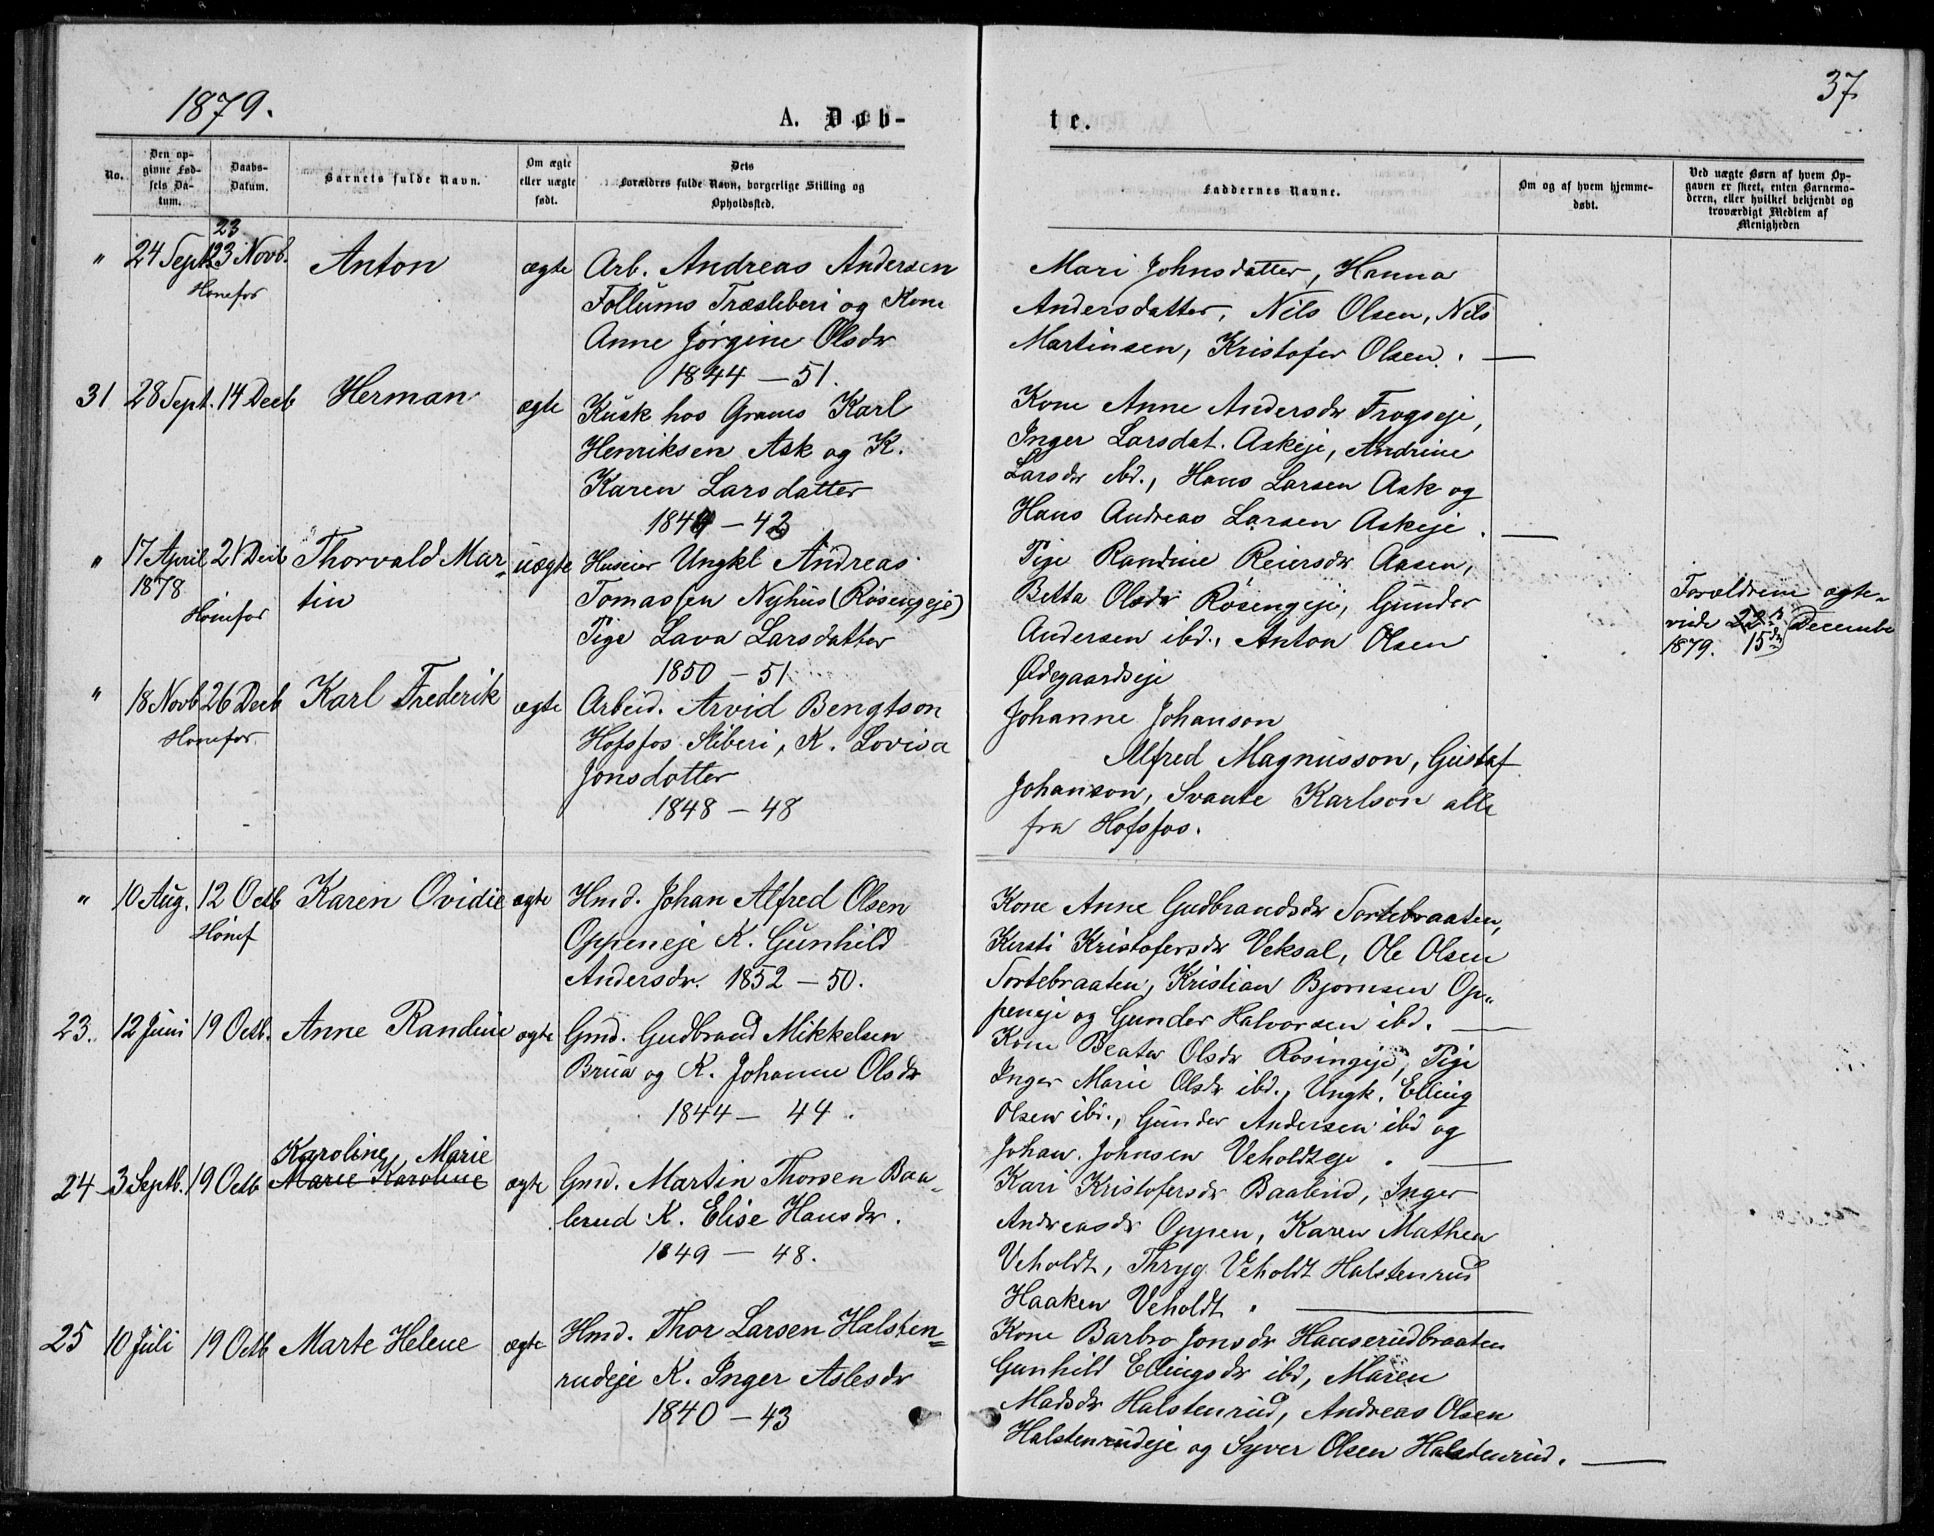 1879.
A. Døb-
te.
37
No.
Den op-
givne Fød-
sels Da-
tum.
Daabs-
Datum.
Barnets fulde Navn.
Om ægte
eller uægte
født.
Dets
Forældres fulde Navn, borgerlige Stilling og
Opholdssted.
Faddernes Navne.
Om og af hvem hjemme-
døbt.
Ved uægte Børn af hvem Op-
gaven er skeet, enten Barnemo-
deren, eller hvilket bekjendt og
troværdigt Medlem af
Menigheden
23
" 24 Sept. 23 Novb. Anton ægte Arb. Andreas Andersen
Hønefos
Follums Træsliberi og Kone
Anne Jørgine Olsdr
1844 – 51.
Mari Johnsdatter, Hanna
Andersdatter, Nils Olsen, Nils
Martinsen, Kristofer Olsen. —
31 28 Sept. 14 Decb Herman ægte Kusk hos Grams Karl
Henriksen Ask og K.
Karen Larsdatter
1844 – 43
Kone Anne Andersdr Frogseje,
Inger Larsdat. Askeje, Andrine
Larsdr ibd., Hans Larsen Ask og
Hans Andreas Larsen Askeje. —
" 17 April 21 Decb Thorvald Mar- uægte Huseier Ungkl Andreas
1878
Hønefos
tin
Tomassen Nyhus (Rösengeje)
Pige Lava Larsdatter
1850 – 51
Pige Randine Reiersdr Aasen,
Betta Olsdr Rösengeje, Gunder
Andersen ibd., Anton Olsen
Ødegaardseje
Forældrene ægte-
viede 22de December
1879. 15de
" 18 Novb 26 Decb Karl Frederik ægte Arbeid. Arvid Bengtson
Hønefos.
Hofsfos Sliberi, K. Lovisa
Jonsdatter
1848 – 48
Johanne Johanson
Alfred Magnusson, Gustaf
Johanson, Svante Karlson alle
fra Hofsfos.
" 10 Aug. 12 Octb Karen Ovidie ægte Hmd. Johan Alfred Olsen
Hønef
Oppeneje K. Gunhild
Andersdr. 1852 – 50.
Kone Anne Gudbrandsdr Sortebraaten,
Kirsti Kristofersdr Veksal, Ole Olsen
Sortebraaten, Kristian Bjornsen Op-
peneje og Gunder Halvorsen ibd. —
23. 12 Juni 19 Octb. Anne Randine ægte Gmd. Gudbrand Mikkelsen
Brua og K. Johanne Olsdr
1844 – 44.
Kone Beate Olsdr Rosingeje, Pige
Inger Marie Olsdr ibd., Ungk. Elling
Olsen ibd., Gunder Andersen ibd og
Johan Johnsen Veholdteje. —
Karoline Marie
24 3 Septb. 19 Octb Marie Karoline ægte Gmd. Martin Thorsen Baa-
lerud K. Elise Hansdr.
1849 – 48.
Kari Kristofersdr Baalerud, Inger
Andreasdr Oppen, Karen Mathea
Veholdt, Thryg. Veholdt Halstenrud
Haaken Veholdt. —
25 10 Juli 19 Octb Marte Helene ægte Hmd. Thor Larsen Halsten-
rudeje K. Inger Aslesdr
1840 – 43
Kone Barbro Jonsdr Hanserudbraaten
Gunhild Ellingsdr ibd, Maren
Madsdr Halstenrud, Andreas Olsen
Halstenrudeje og Syver Olsen Halstenrud. —